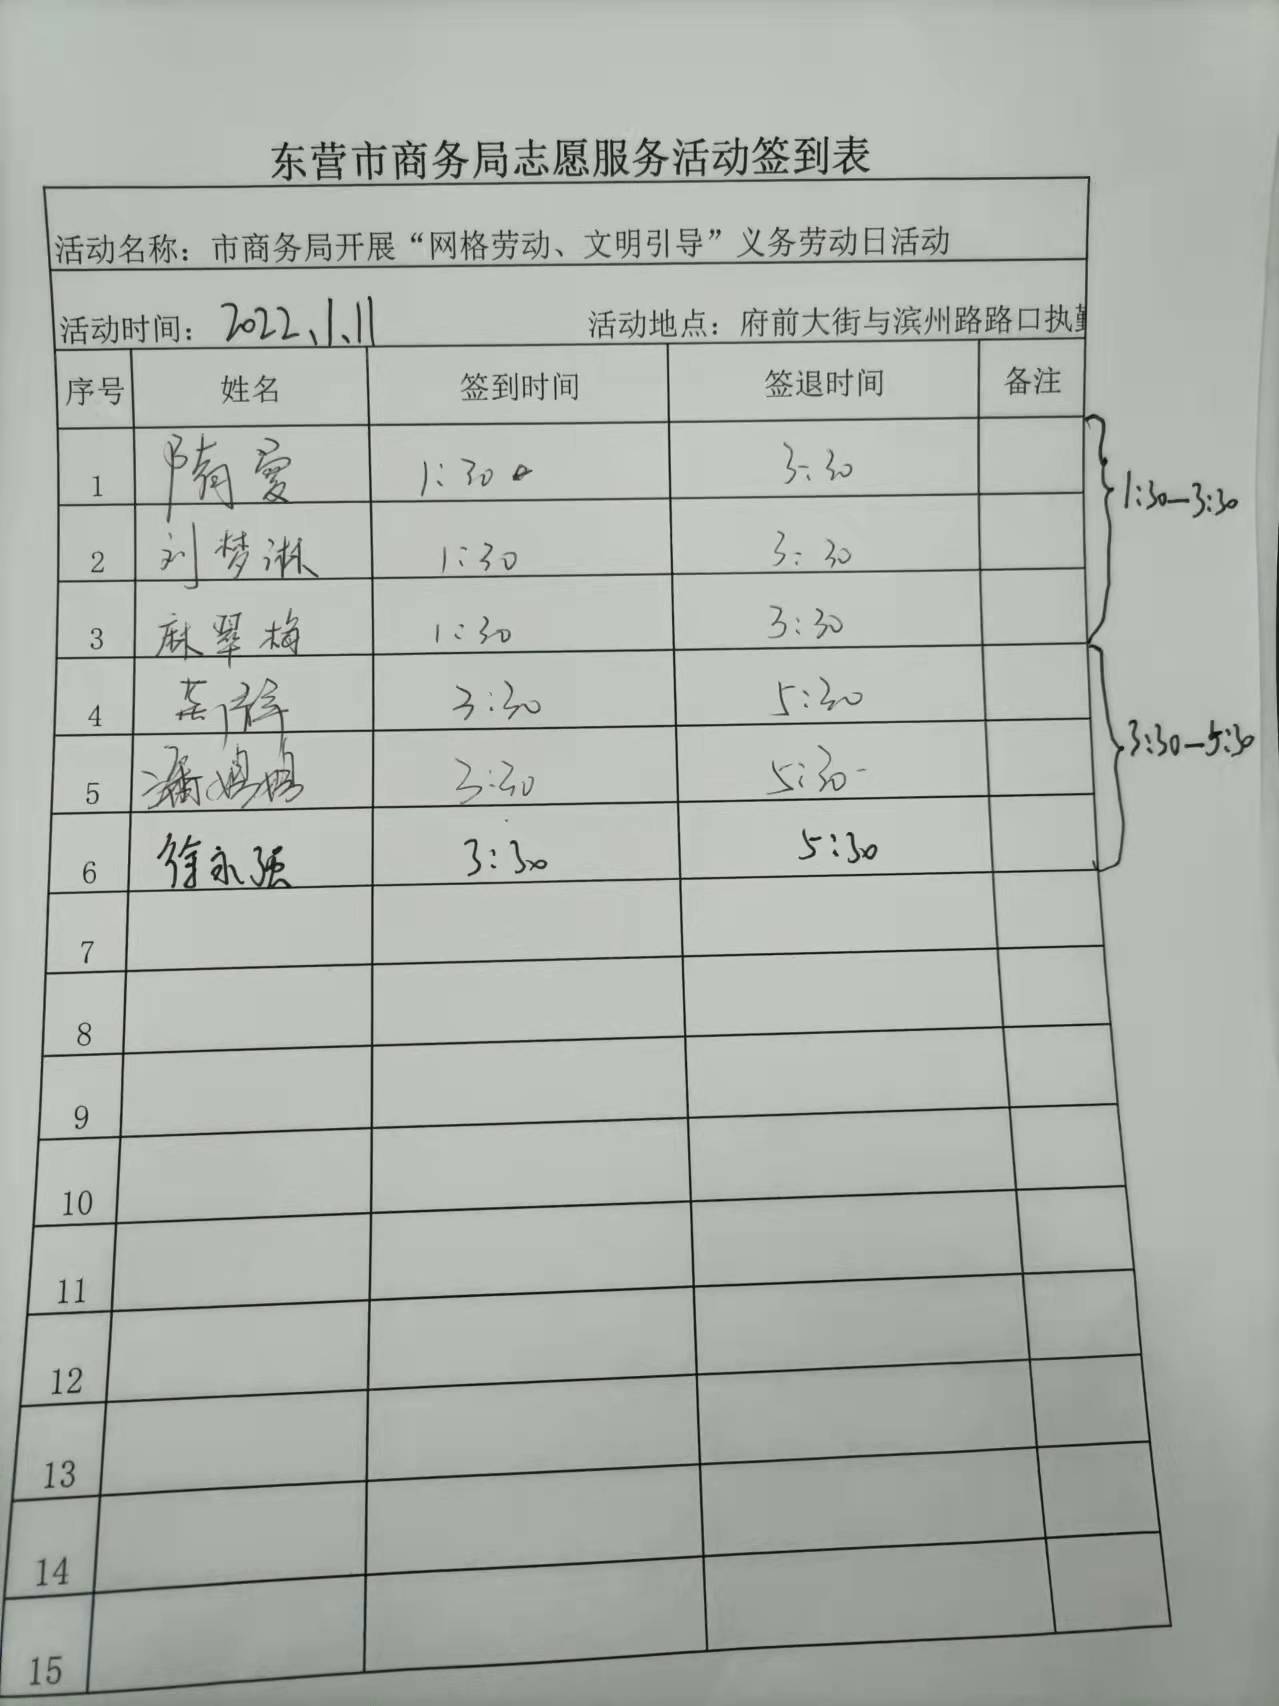 东营市商务局志愿服务活动签到表
活动名称：市商务局开展“网格劳动、文明引导”义务劳动日活动
活动时间：2022.1.11 活动地点：府前大街与滨州路路口执勤
序号 姓名 签到时间 签退时间 备注
1 隋 1:30 3:30
2 刘梦淋 1:30 3:30
3 麻翠梅 1:30 3:30
1:30—3:30
4 3:30 5:30
5 潘娟娟 3:30 5:30
6 徐永强 3:30 5:30
3:30—5:30
7
8
9
10
11
12
13
14
15